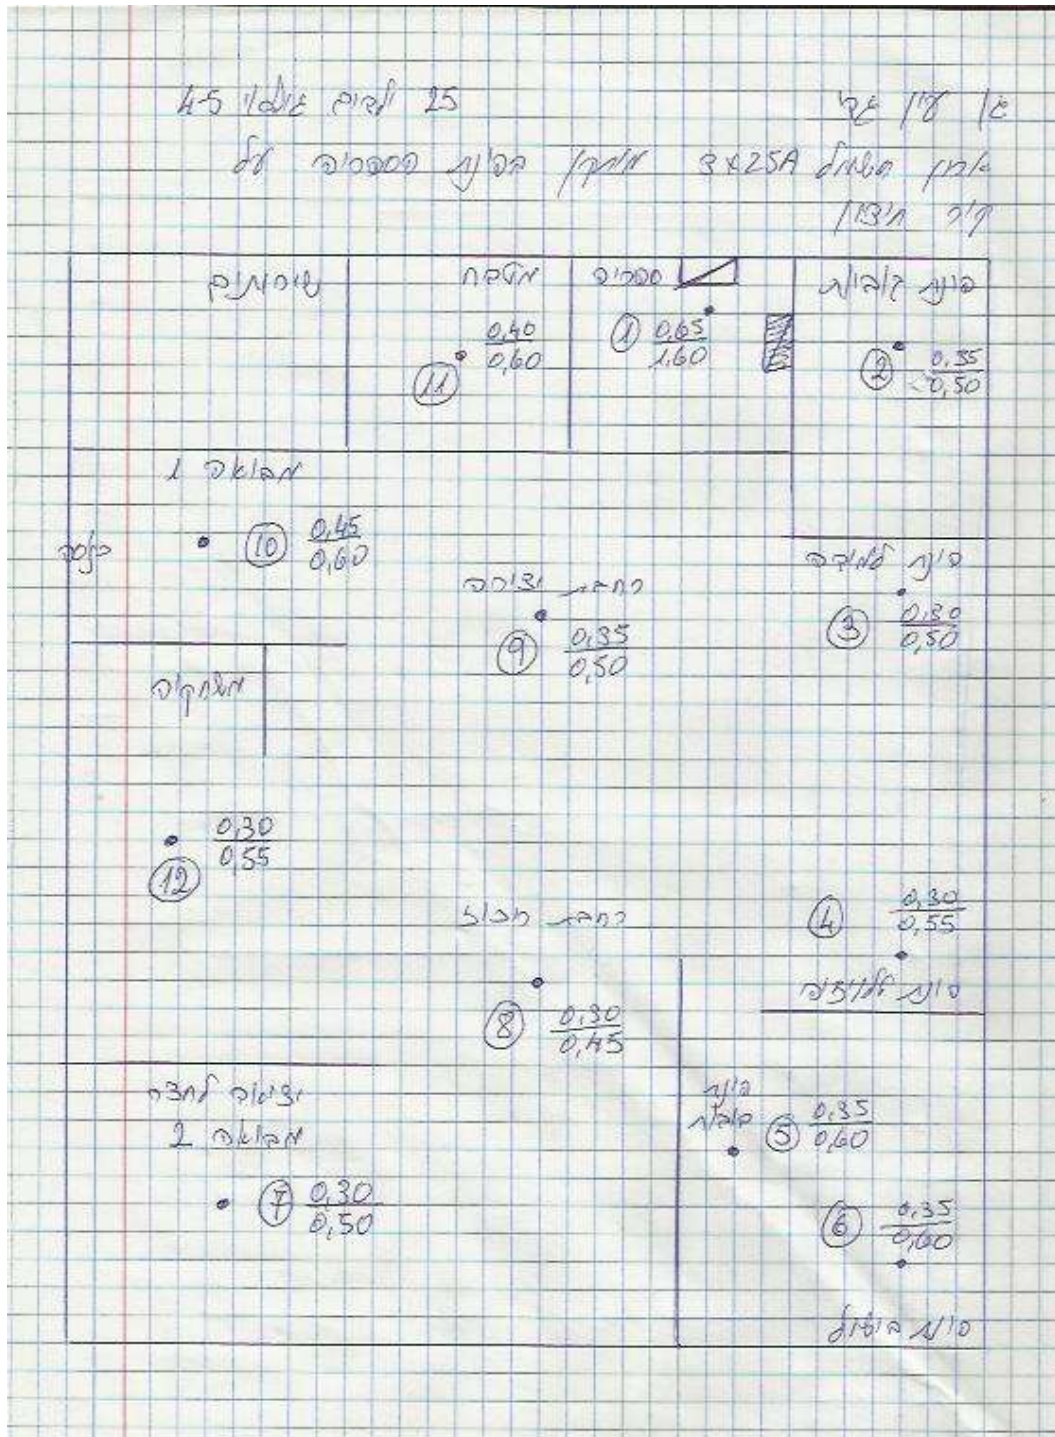 גן עין גדי 25 ילדים גילאי 4-5
ארון חשמל 3x25A מותקן בפינת הספריה על
קיר חיצון
פינת קוביות
ספריה
מטבח
שירותים
1 0,65
1,60
2 0,35
0,50
11 0,40
0,60
מבואה 1
כניסה
10 0,45
0,60
רחבת יצירה
9 0,35
0,50
פינת למידה
3 0,30
0,50
משחקיה
12 0,30
0,55
רחבת ריכוז
8 0,30
0,45
4 0,30
0,55
פינת טלויזיה
יציאה לחצר
מבואה 2
7 0,30
0,50
פינת
בובות
5 0,35
0,60
6 0,35
0,60
פינת בישול